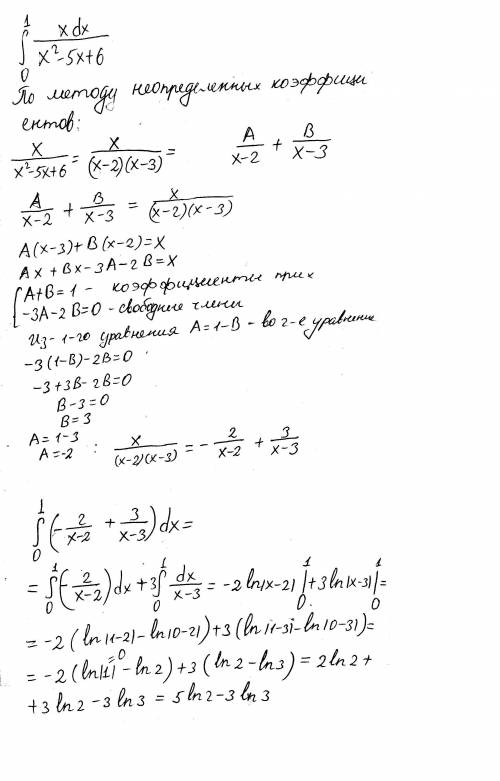 ∫₀¹ x dx / (x²-5x+6)
По методу неопределенных коэффици
ентов:
x/(x²-5x+6) = x/((x-2)(x-3)) = A/(x-2) + B/(x-3)
A/(x-2) + B/(x-3) = x/((x-2)(x-3))
A(x-3)+B(x-2)=x
Ax+Bx-3A-2B=x
{A+B=1 - коэффициенты при x
-3A-2B=0 - свободные члены
Из-1-го уравнения A=1-B - во 2-е уравнение
-3(1-B)-2B=0
-3+3B-2B=0
B-3=0
B=3
A=1-3
A=-2 : x/((x-2)(x-3)) = -2/(x-2) + 3/(x-3)
∫₀¹(-2/(x-2) + 3/(x-3))dx=
=∫₀¹(-2/(x-2))dx+3∫₀¹dx/(x-3) = -2ln|x-2||₀¹+3ln|x-3||₀¹=
=-2(ln|1-2|-ln|0-2|)+3(ln|1-3|-ln|0-3|)=
=-2(ln|1|=0-ln2)+3(ln2-ln3)=2ln2+
+3ln2-3ln3=5ln2-3ln3